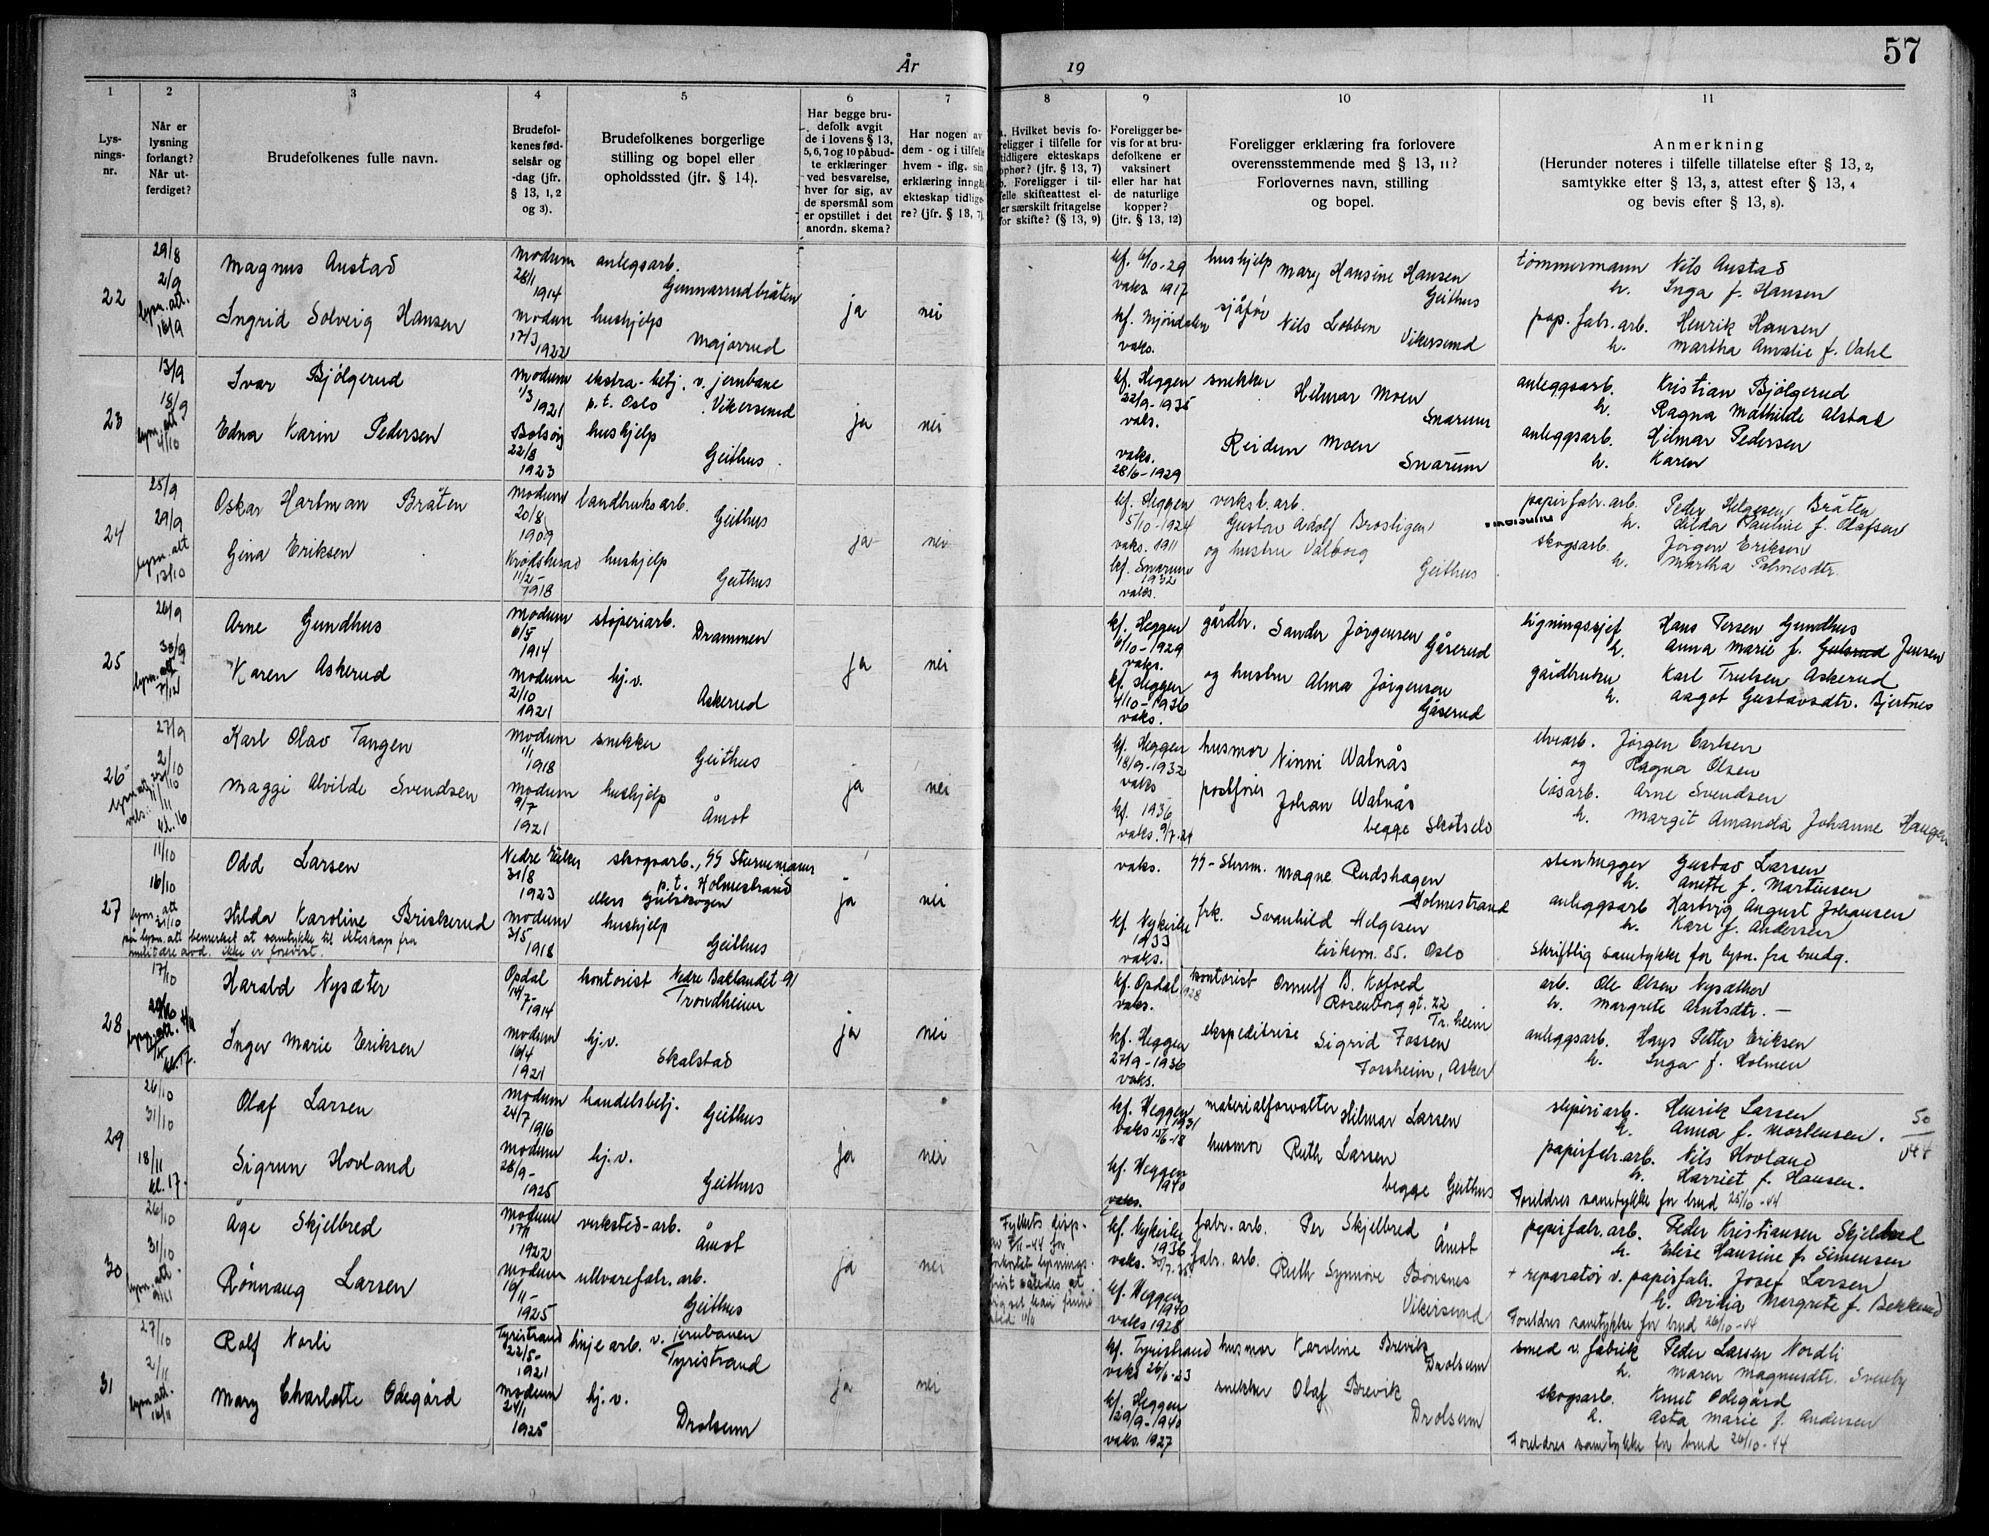 57
År 19
1 2 3 4 5 6 7 8 9 10 11
Lys-
nings-
nr.
Når er
lysning
forlangt?
Når ut-
ferdiget?
Brudefolkenes fulle navn.
Brudefol-
kenes fød-
selsår og
-dag (jfr.
§ 13, 1, 2
og 3).
Brudefolkenes borgerlige
stilling og bopel eller
opholdssted (jfr. § 14).
Har begge bru-
defolk avgit
de i lovens § 13,
5, 6, 7 og 10 påbud-
te erklæringer
ved besvarelse,
hver for sig, av
de spørsmål som
er opstillet i det
anordn. skema?
Har nogen av
dem - og i tilfelle
hvem - iflg. sin
erklæring inngå
ekteskap tidlige-
re? (jfr. § 13, 7)
a. Hvilket bevis fo-
religger i tilfelle for
tidligere ekteskaps
ophør? (jfr. § 13, 7)
b. Foreligger i til-
felle skifteattest el-
er særskilt fritagelse
for skifte? (§ 13, 9)
Foreligger be-
vis for at bru-
defolkene er
vaksinert
eller har hat
de naturlige
kopper?
(jfr. § 13, 12)
Foreligger erklæring fra forlovere
overensstemmende med § 13, 11?
Forlovernes navn, stilling
og bopel.
Anmerkning
(Herunder noteres i tilfelle tillatelse efter § 13, 2,
samtykke efter § 13, 3, attest efter § 13, 4
og bevis efter § 13, 8).
22
29/8
2/9
lysn. att.
16/9
Magnus Austad
Ingrid Solveig Hansen
Modum
28/1
1914
Modum
17/3
1922
anlegsarb.
Gunnarrudbråten
hushjelp
Majorrud
ja
nei
kf. 6/10-29
vaks 1917
kf. Mjøndalen
vaks.
hushjelp Mary Hansine Hansen
Geithus
sjåfør Nils Lobben
Vikersund
tømmermann Nils Austad
h. Inga f. Hansen
pap. fabr. arb. Henrik Hansen
h. Martha Amalie f. Vahl
23
13/9
18/9
lysn. att
4/10
Ivar Bjølgerud
Edna Karin Pedersen
Modum
1/3
1921
Bolsøy
22/8
1923
ekstra-betj. v. jernbane
p.t. Oslo . Vikersund
hushjelp
Geithus.
ja
nei
kf. Heggen
22/9-1935
vaks.
vaks.
28/6-1929
snekker Hilmar Moen
Snarum
Reidun Moen
Snarum
anleggsarb. Kristian Bjølgerud
h. Ragna Mathilde Alstad
anleggsarb. Hilmar Pedersen
h. Karen
24
25/9
29/9
lysn. att
13/10
Oskar Hartman Bråten
Gina Eriksen
Modum
20/8
1909
Krødsherad
11/2-
1918
landbruksarb.
Geithus
hushjelp
Geithus
ja
nei
kf. Heggen
5/10-1924
vaks. 1911
kf. Snarum
1932
vaks.
verkst. arb.
Gustav Adolf Brostigen
og hustru Valborg
Geithus
papirfabr. arb. Peder Helgesen Bråten
h. Hilda Pauline f. Olafsen
skogsarb. Jørgen Eriksen
h. Martha Palmesdtr.
25
26/9
30/9
lysn. att
Arne Gundhus
Karen Askerud
Modum
6/5
1914
Modum
2/10
1921
støperiarb.
Drammen
hj.v.
Askerud
ja
nei
kf. Heggen
6/10-1929
vaks.
kf. Heggen
4/10-1936
vaks.
gårdbr. Sander Jørgensen
Gåserud
og hustru Alma Jørgensen
Gåserud
ligningssjef Hans Tersen Gundhus
h. Anna Marie f. Gulsrud Jensen
gårdbruker Karl Trulsen Askerud
h. Aagot Gustavsdtr. Bjertnes
26
27/9
2/10
lysn. att
kl. 16
Karl Olav Tangen
Maggi Alvilde Svendsen
Modum
1/1
1918
Modum
9/7
1921
snekker
Geithus
hushjelp
Åmot
ja
nei
kf. Heggen
18/9-1932
vaks
kf. 1936
vaks. 9/7-24
husmor Ninni Walnås
postfører Johan Walnås
begge Skotselv
elvearb. Jørgen Carlsen
og Ragna Olsen
løsarb. Arne Svendsen
h. Margit Amanda Johanne Haugen
27
11/10
16/10
lysn. att
31/10
Odd Larsen
Hilda Karoline Briskerud
på lysn. att. bemerket at samtykke til ekteskap fra
militære avd. ikke er forevist.
Nedre Eiker
31/8
1923
Modum
3/5
1918
skogsarb., SS Sturmmann
p.t. Holmestrand
ellers Gulskogen
hushjelp
Geithus
ja
nei
vaks.
kf. Nykirke
1933
vaks.
SS-Sturm. Magne Rudshagen
Holmestrand
frk. Svanhild Helgesen
Kirkevn. 85. Oslo
stenhugger Gustav Larsen
h. Anette f. Martinsen
anleggsarb Hartvig August Johansen
h. Kari f. Andersen
Skriftlig samtykke for lysn. fra brudg.
28
17/10
lysn. att.
kl. 17.
Harald Nysæter
Inger Marie Eriksen
Opdal
14/7-
1914
Modum
16/4
1921
kontorist Nedre Baklandet 91
Trondheim
hj.v.
Skalstad
ja
nei
kf. Opdal
1928
vaks.
kf. Heggen
27/9-1936
vaks.
kontorist Ornulf B. Kofoed
Rosenborg gt. 22
Tr. heim
ekspeditrise Sigrid Fossen
Forsheim, Asker
arb. Ole Olsen Nysæther
h. Margrete Arntsdtr. —
anleggsarb. Hans Petter Eriksen
h. Inga f. Holmen
29
26/10
31/10
18/11
kl. 17.
Olaf Larsen
Sigrun Hovland
Modum
24/7
1916
Modum
28/9-
1925
handelsbetj.
Geithus
hj.v.
Geithus
ja
nei
kf. Heggen
1931
vaks 15/6-18
kf. Heggen
1940
vaks.
materialforvalter Hilmar Larsen
husmor Ruth Larsen
begge Geithus
sliperiarb. Henrik Larsen
h. Anna f. Mortensen.
papirfabr. arb. Nils Hovland
h. Harriet f. Hansen.
Foreldres samtykke for brud 25/10-44
50
/44
30
26/10
31/10
lysn. att.
Åge Skjelbred
Rønnaug Larsen
Modum
17/1
1922
Modum
16/11-
1925
verksted-arb.
Åmot
ullvarefabr. arb.
Geithus
ja
nei
Fylkets disp.
kf. Nykirke
1936
vaks. 30/7-25
kf. Heggen
1940
vaks 1928
fabr. arb. Per Skjelbred
Åmot
fabr. arb. Ruth Synnøve Bønsnes
Vikersund
papirfabr. arb. Peder Kristiansen Skjelbred
h. Elise Hansine f. Simensen
+ reparatør v. papirfabr. Josef Larsen
h. Ovilia Margrete f. Bekkerud
Foreldres samtykke for brud 26/10-44
31
27/10
2/11
lysn. att.
16/11
Rolf Norli
Mary Charlotte Ødegård
Tyristrand
22/5-
1921
Modum
24/1
1925
linjearb. v. Jernbanen
Tyristrand
hj.v.
Drolsum
ja
nei
kf. Tyristrand
vaks 26/6-23
kf. Heggen
29/9-1940
vaks. 1927
husmor Karoline Brevik
Drolsum
snekker Olaf Brevik
Drolsum
smed v. fabrik Peder Larsen Nordli
h. Maren Magnusdtr. Svenby
skogsarb. Knut Ødegård
h. Asta Marie f. Andersen
Foreldres samtykke for brud 26/10-44